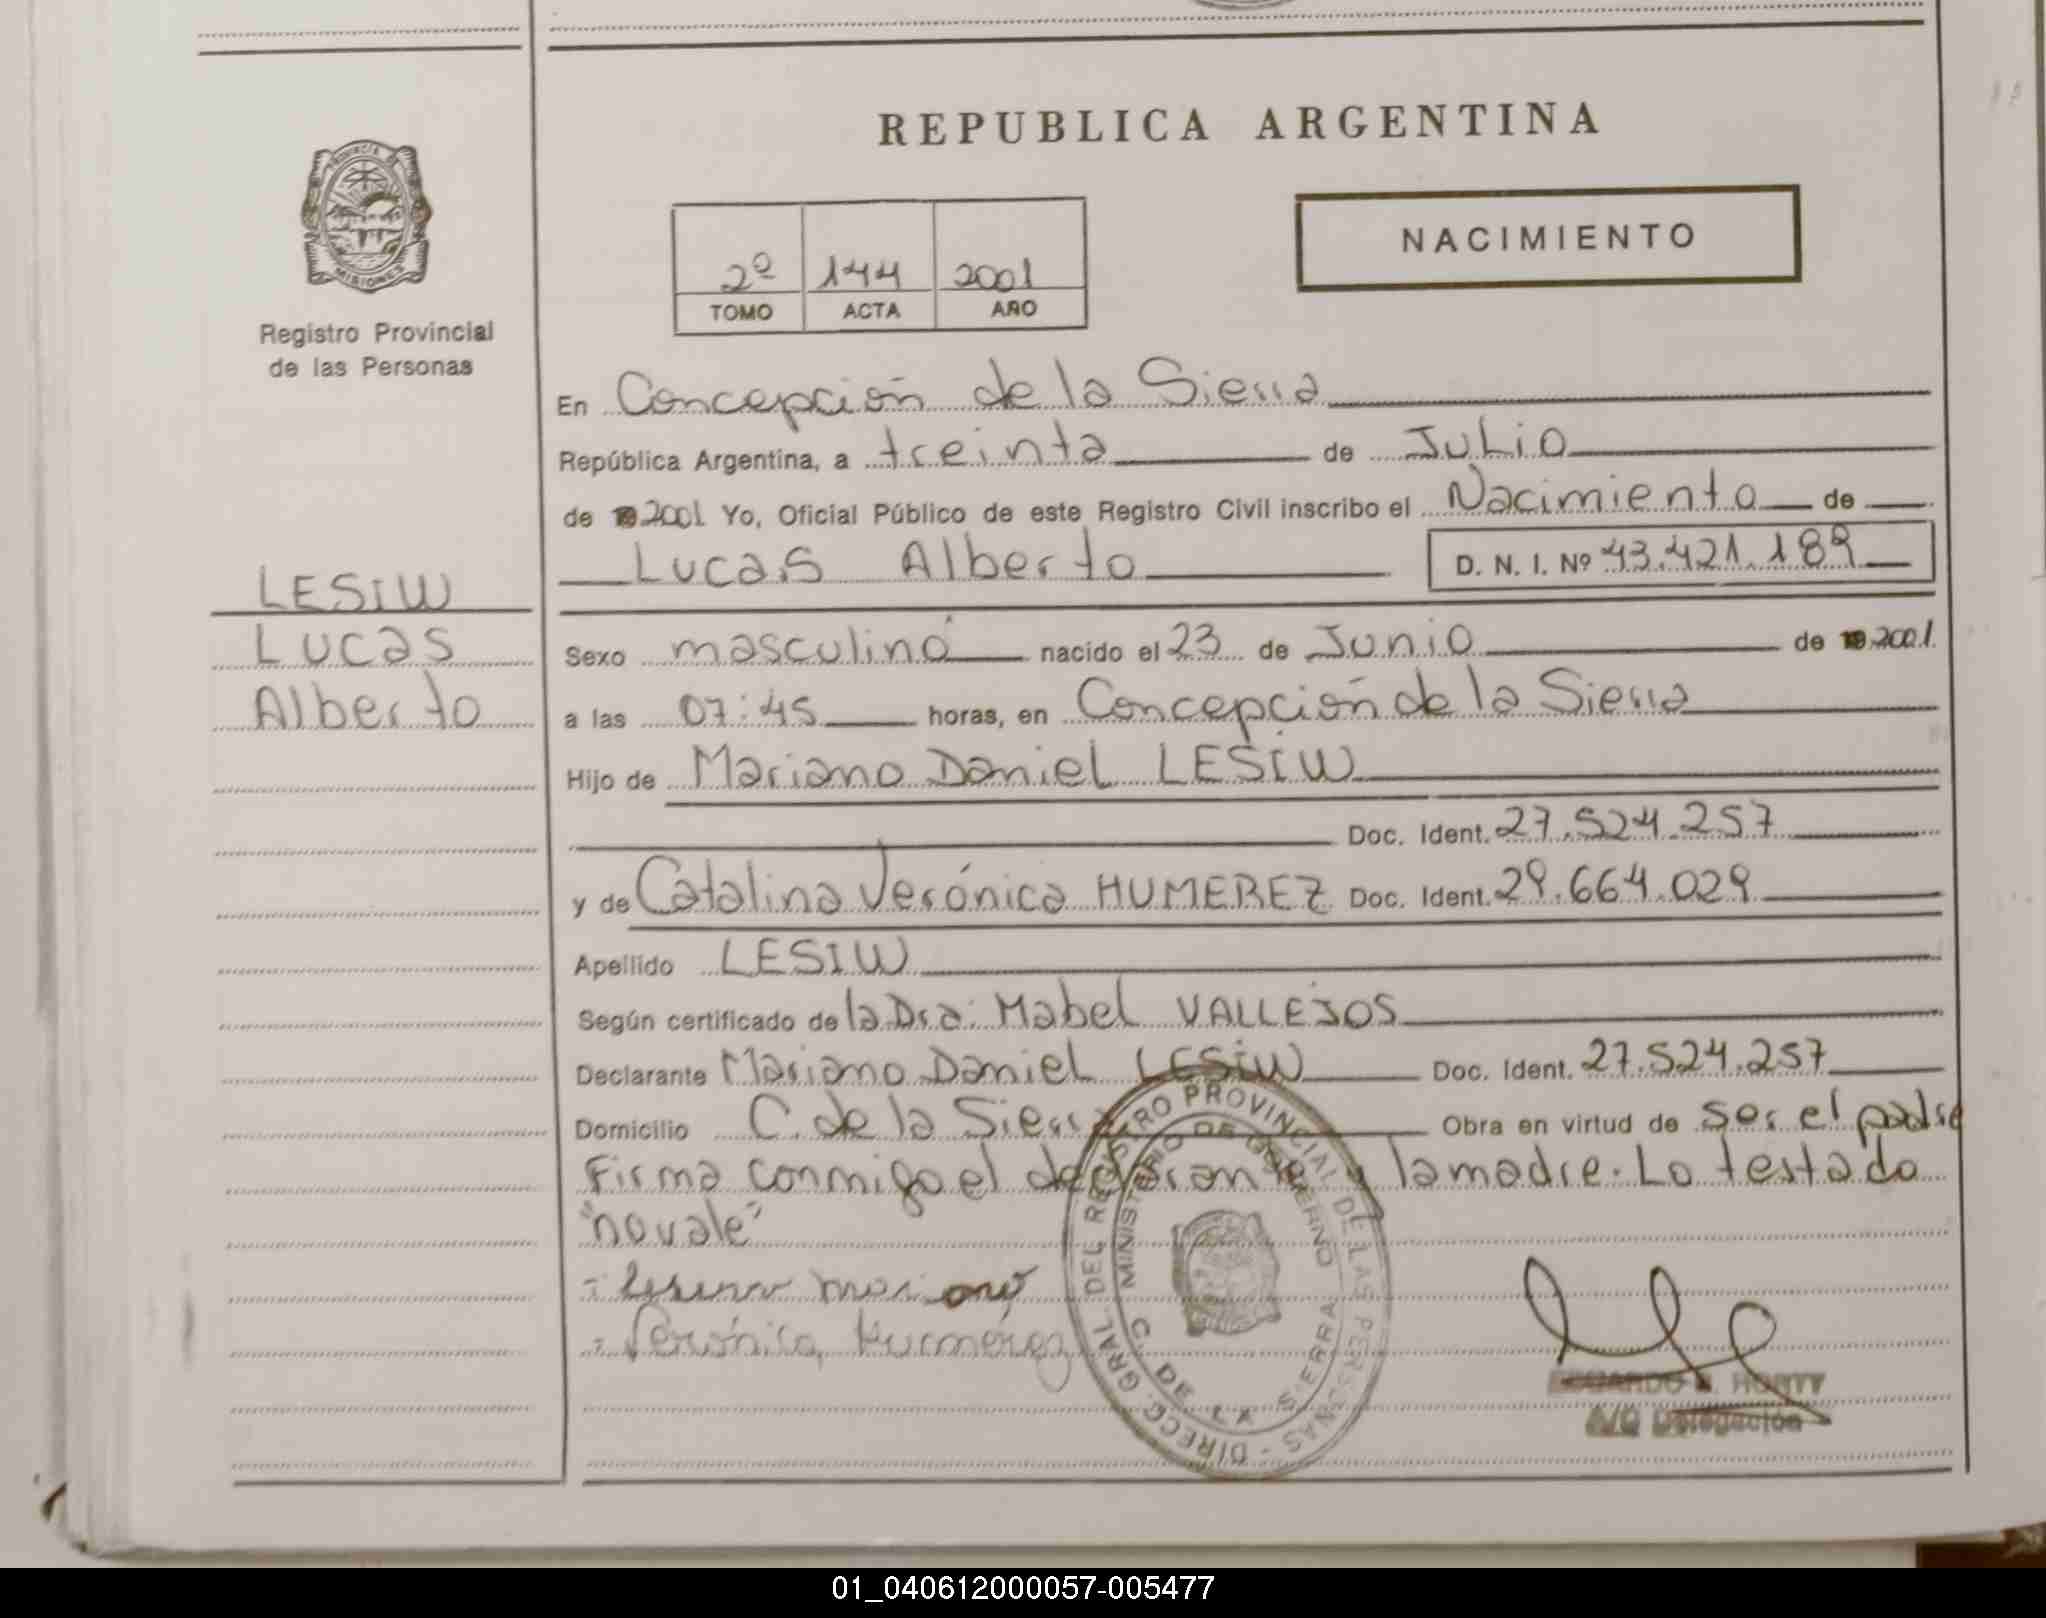 REPUBLICA ARGENTINA
PROVINCIA DE MISIONES
Registro Provincial
de las Personas
2º 144 2001
TOMO ACTA AÑO
NACIMIENTO
En Concepción de la Sierra
República Argentina, a treinta de Julio
de 19 2001 Yo, Oficial Público de este Registro Civil inscribo el Nacimiento de
Lucas Alberto D. N. I. Nº 43.421.189
LESIW
Lucas
Alberto
Sexo masculino nacido el 23 de Junio de 19 2001.
a las 07:45 horas, en Concepción de la Sierra
Hijo de Mariano Daniel LESIW
Doc. Ident. 27.524.257
y de Catalina Verónica HUMEREZ Doc. Ident. 29.664.029
Apellido LESIW
Según certificado de la Dra: Mabel VALLEJOS
Declarante Mariano Daniel LESIW Doc. Ident. 27.524.257
Domicilio C. de la Sierra Obra en virtud de ser el padre
Firma conmigo el declarante y la madre. Lo testado
"no vale"
mariano
Verónica Humerez
DIRECC. GRAL. DEL REGISTRO PROVINCIAL DE LAS PERSONAS -
MINISTERIO DE GOBIERNO
C. DE LA SIERRA
HORTY
A/C Delegación
01_040612000057-005477